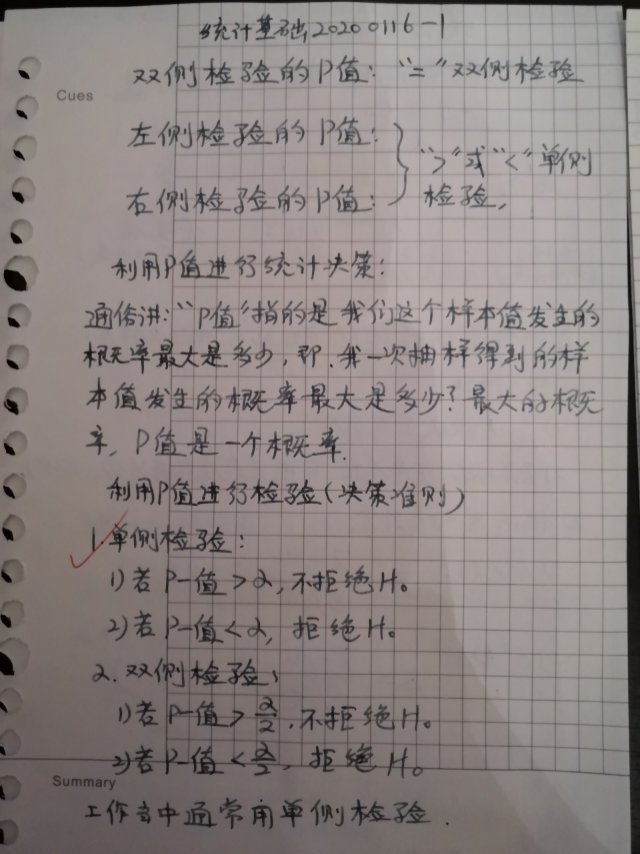 统计基础20200116-1
Cues
双侧检验的P值："="双侧检验
左侧检验的P值：
">"或"<"单侧
右侧检验的P值：
检验，
利用P值进行统计决策：
通俗讲："P值"指的是我们这个样本值发生的
概率最大是多少，即，我一次抽样得到的样
本值发生的概率最大是多少？最大的概
率，P值是一个概率.
利用P值进行检验(决策准则)
1.单侧检验：
1)若P-值>α,不拒绝H₀
2)若P-值<α,拒绝H₀
2.双侧检验：
1)若P-值>α/2,不拒绝H₀
2)若P-值<α/2,拒绝H₀
Summary
工作当中通常用单侧检验.